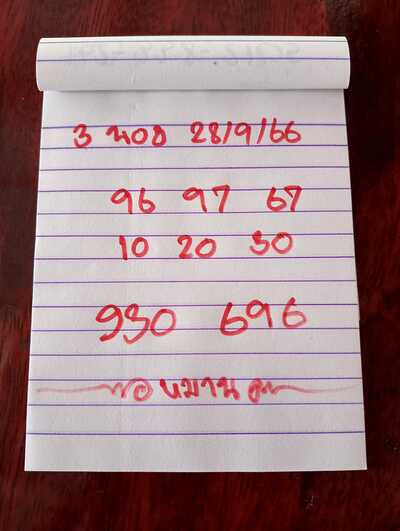 3 นอย 28/9/66
96 97 67
10 20 30
930 696
หมาน